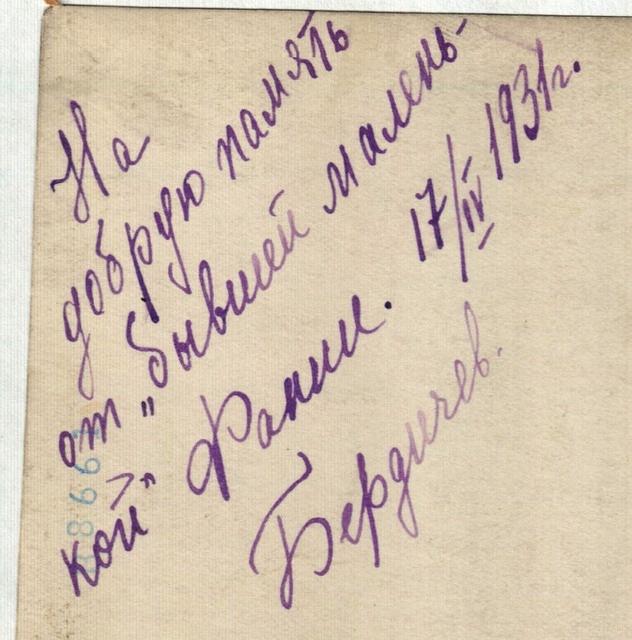 На
добрую память
от „бывшей малень-
кой“ Фании.
17/IV 1931 г.
Бердичев.